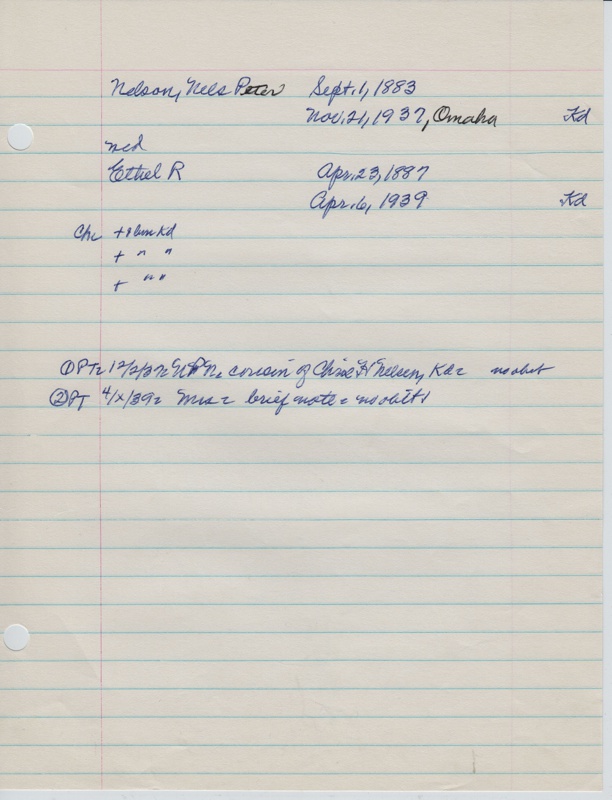 Nelson, Nels Peter Sept. 1, 1883
Nov. 21, 1937, Omaha Kd
md
Ethel R Apr. 23, 1887
Apr. 6, 1939 Kd
Chi + bm Kd
+ " "
+ " "
① PT= 12/2/37= N P N, cousin of Chris H Nelson, Kd= no obit
② PT 4/x/39= Mrs= brief note= no obit